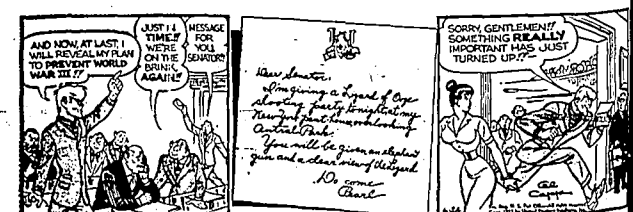 AND NOW, AT LAST, I
WILL REVEAL MY PLAN
TO PREVENT WORLD
WAR III!!
JUST IN
TIME!!
WE'RE
ON THE
BRINK,
AGAIN!!
MESSAGE
FOR
YOU,
SENATOR!!
Dear Senator:
I'm giving a Lizard of Ooze
shooting party tonight at my
New York penthouse overlooking
Central Park.
You will be given an elephant
gun and a clear view of the Lizard
Do come
Pearl
SORRY, GENTLEMEN!!
SOMETHING REALLY
IMPORTANT HAS JUST
TURNED UP!!
Al
Capp